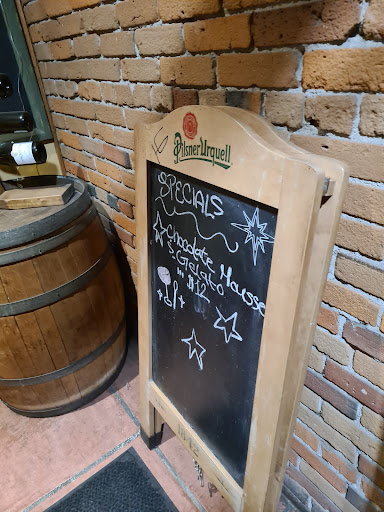 Pilsner Urquell
SPECIALS
Chocolate Mousse
& Gelato
$12